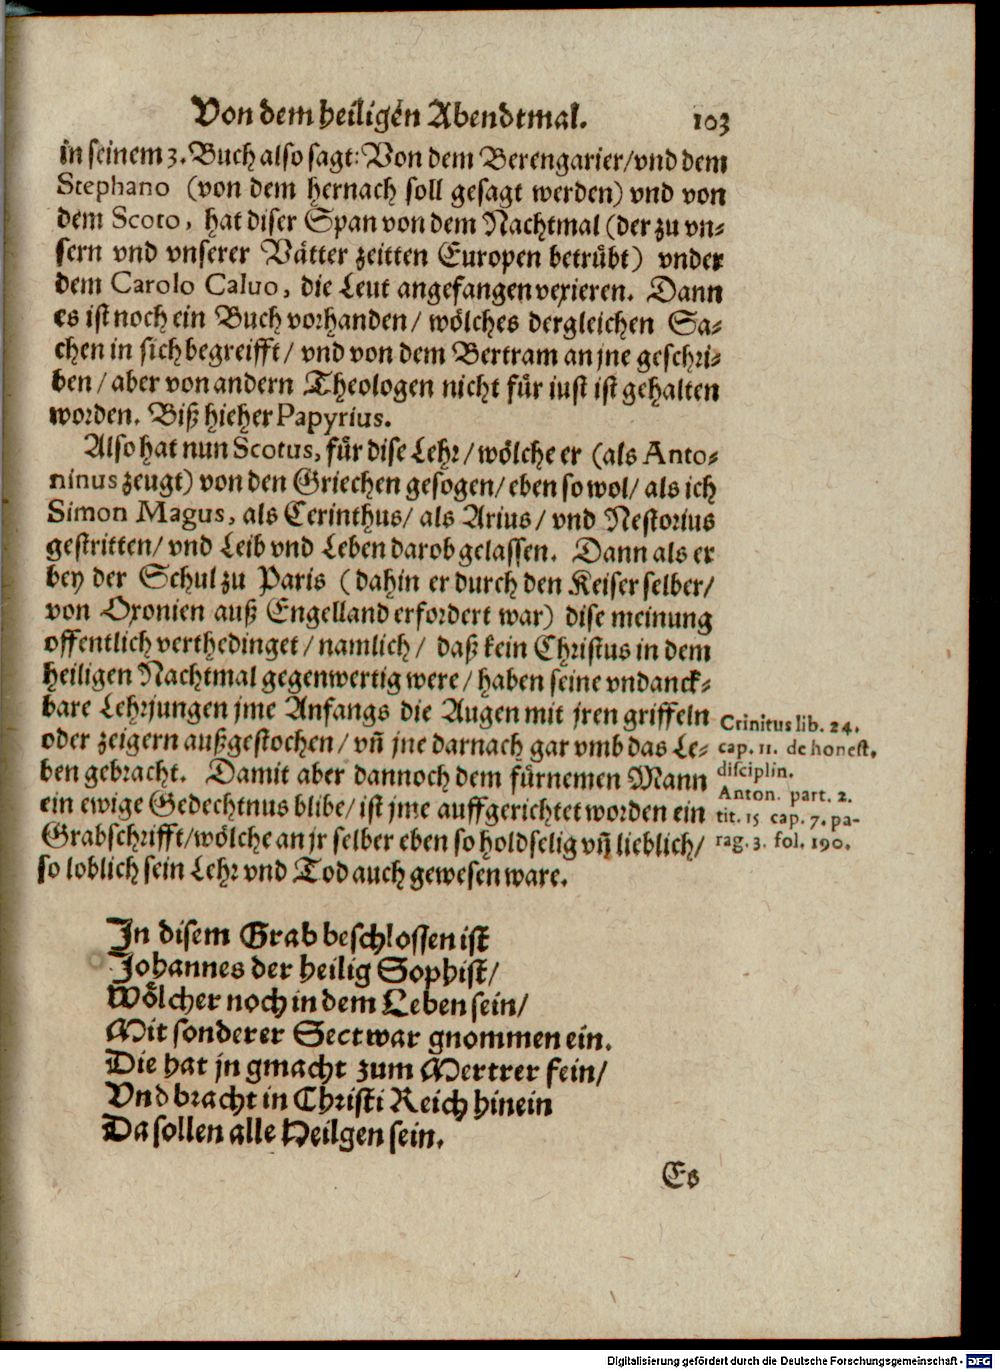 Von dem heiligen Abendtmal. 103
in seinem 3. Buch also sagt: Von dem Berengarier/ vnd dem
Stephano (von dem hernach soll gesagt werden) vnd von
dem Scoto, hat diser Span von dem Nachtmal (der zu vn-
sern vnd vnserer Vätter zeitten Europen betrübt) vnder
dem Carolo Caluo, die Leut angefangen vexieren. Dann
es ist noch ein Buch vorhanden/ wölches dergleichen Sa-
chen in sich begreifft/ vnd von dem Bertram an jne geschri-
ben/ aber von andern Theologen nicht für iust ist gehalten
worden. Biß hieher Papyrius.
Also hat nun Scotus, für dise Lehr/ wölche er (als Anto-
ninus zeugt) von den Griechen gesogen/ eben so wol/ als ich
Simon Magus, als Cerinthus/ als Arius/ vnd Nestorius
gestritten/ vnd Leib vnd Leben darob gelassen. Dann als er
bey der Schul zu Paris (dahin er durch den Keiser selber/
von Oxonien auß Engelland erfordert war) dise meinung
offentlich verthedinget/ namlich/ daß kein Christus in dem
heiligen Nachtmal gegenwertig were/ haben seine vndanck-
bare Lehrjungen jme Anfangs die Augen mit jren griffeln
oder zeigern außgestochen/ vñ jne darnach gar vmb das Le-
ben gebracht. Damit aber dannoch dem fürnemen Mann
ein ewige Gedechtnus blibe/ ist jme auffgerichtet worden ein
Grabschrifft/ wölche an jr selber eben so holdselig vñ lieblich/
so loblich sein Lehr vnd Tod auch gewesen ware.
Crinitus lib. 24.
cap. 11. de honest.
disciplin.
Anton. part. 2.
tit. 15 cap. 7. pa-
rag. 3. fol. 190.
In disem Grab beschlossen ist
Johannes der heilig Sophist/
Wölcher noch in dem Leben sein/
Mit sonderer Sect war gnommen ein.
Die hat jn gmacht zum Mertrer fein/
Vnd bracht in Christi Reich hinein
Da sollen alle Heilgen sein.
Es
Digitalisierung gefördert durch die Deutsche Forschungsgemeinschaft - DFG